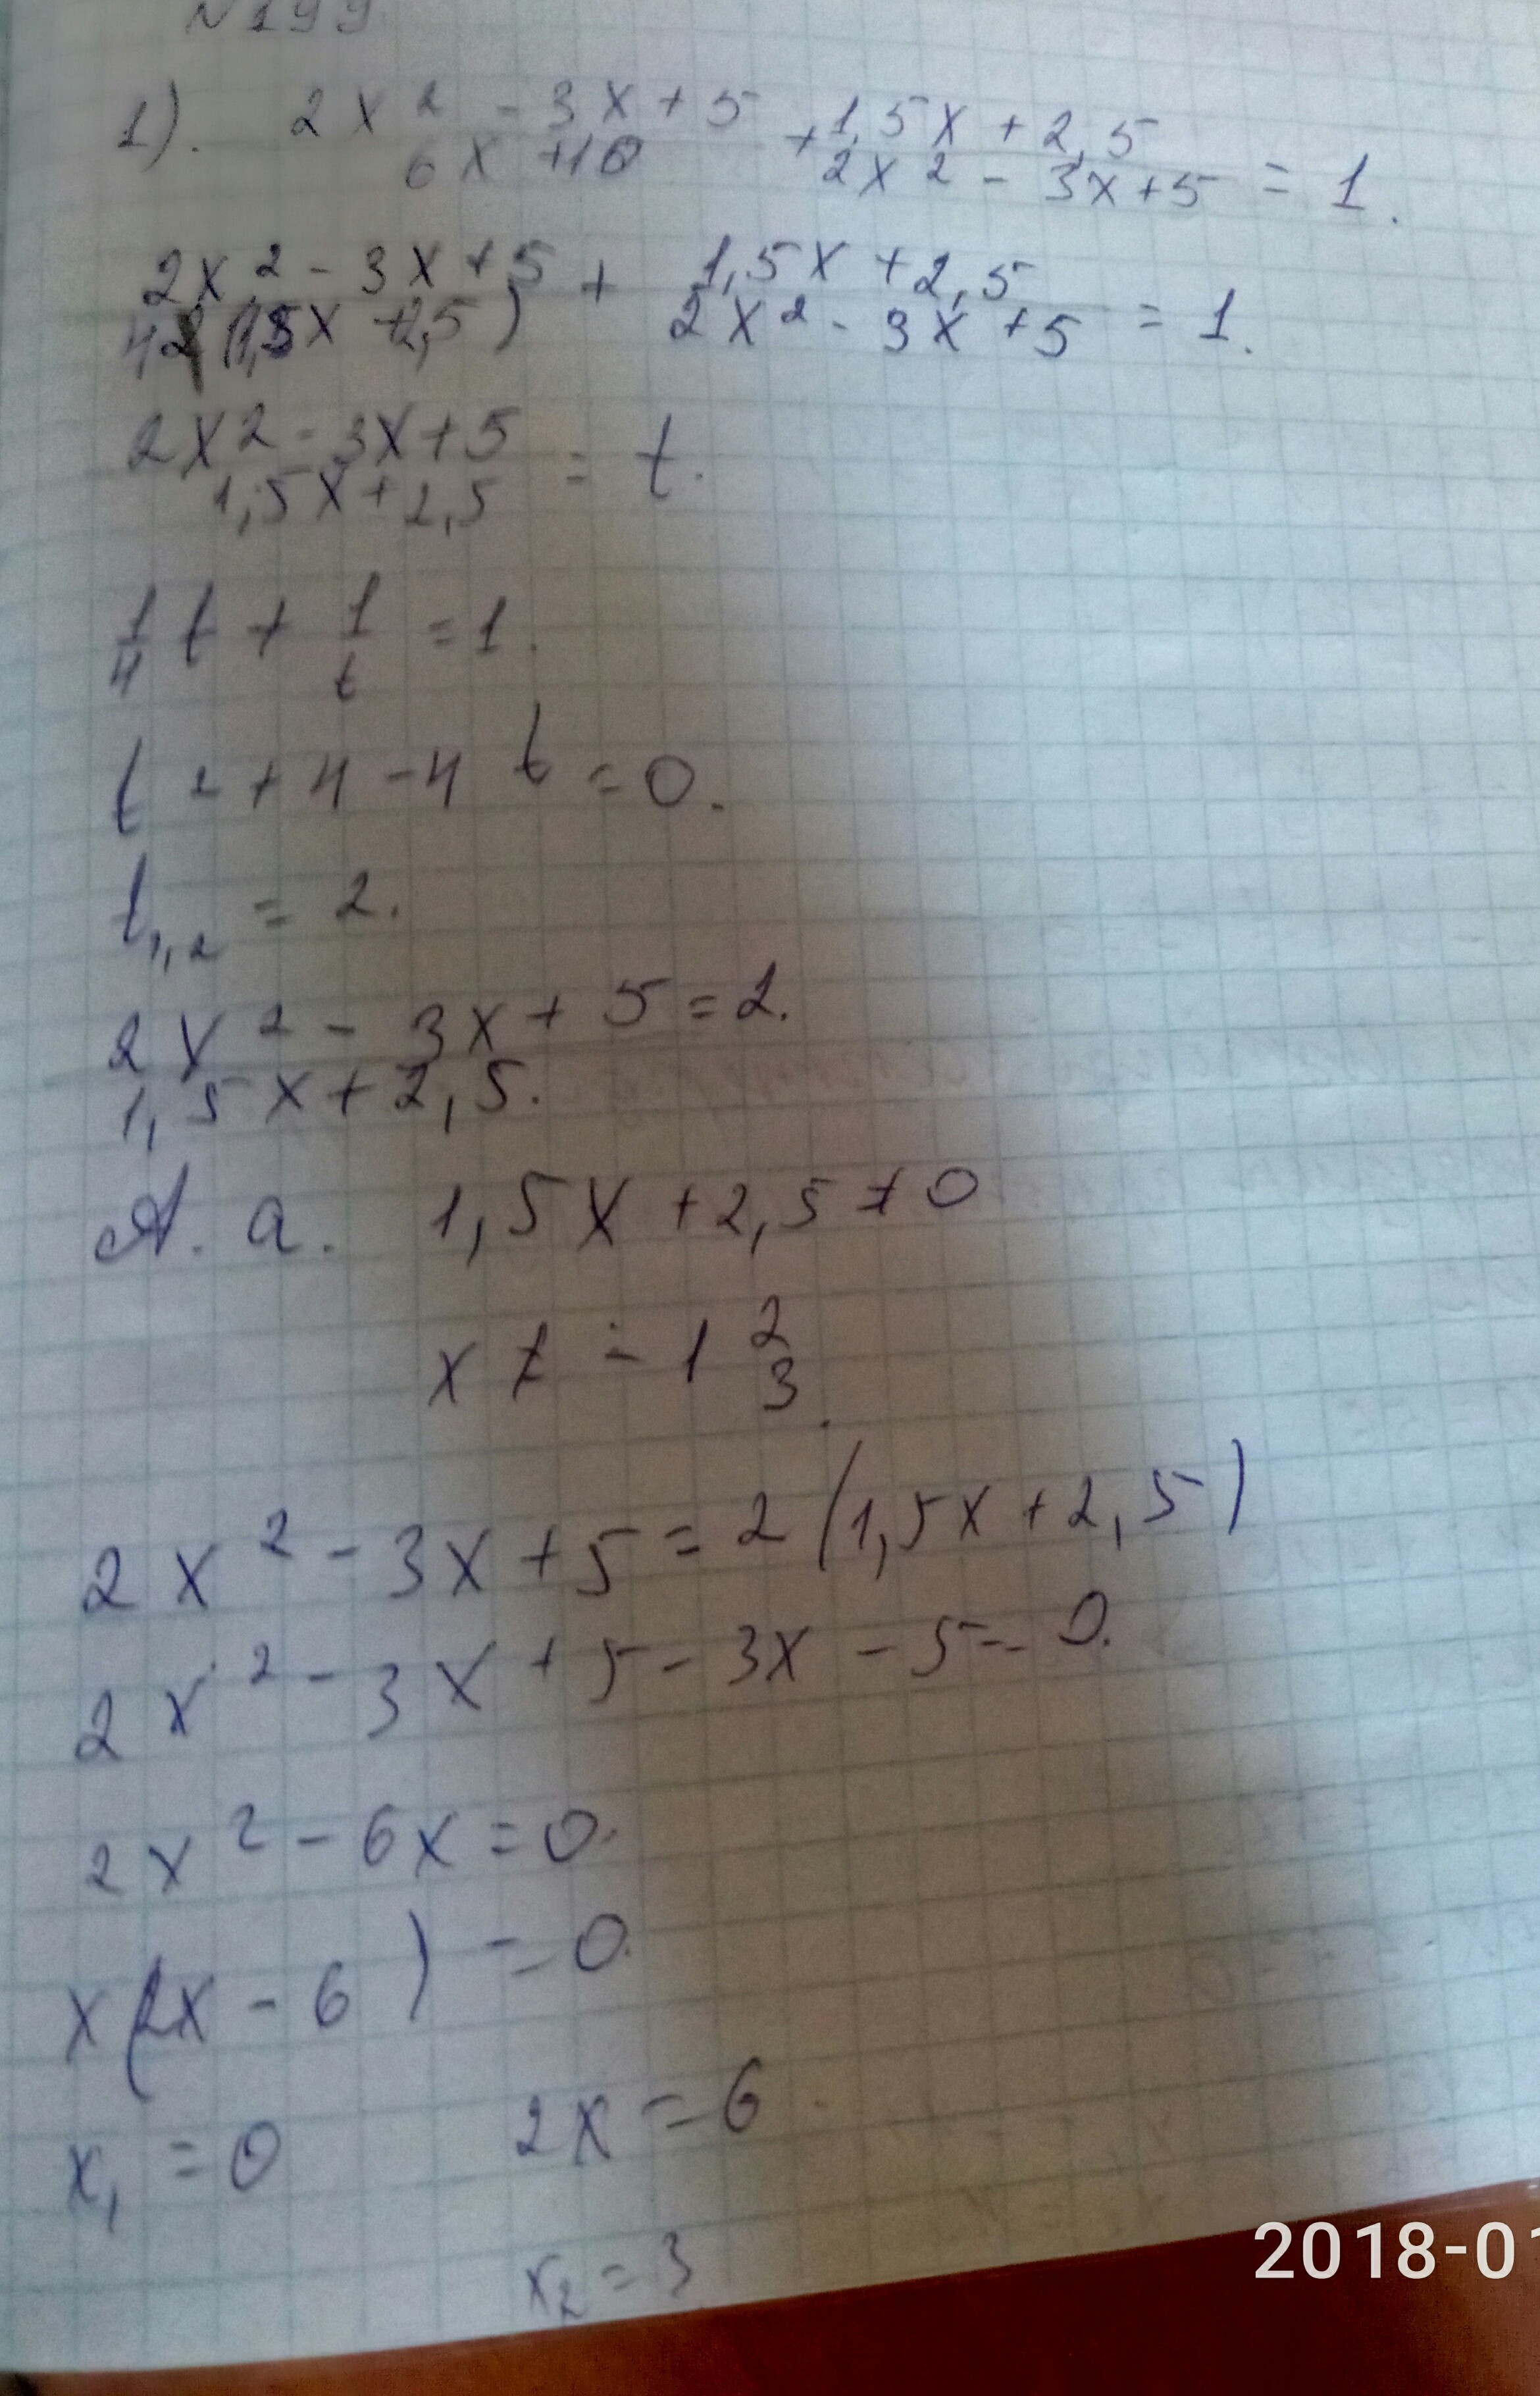 N199
1). 2x² - 3x + 5 / 6x + 10 + 1,5x + 2,5 / 2x² - 3x + 5 = 1.
2x² - 3x + 5 / 4(1,5x + 2,5) + 1,5x + 2,5 / 2x² - 3x + 5 = 1.
2x2 - 3x + 5 / 1,5x + 2,5 = t.
1/4 t + 1/t = 1.
t² + 4 - 4t = 0.
t₁,₂ = 2.
2x² - 3x + 5 = 2.
1,5x + 2,5.
А. а. 1,5x + 2,5 ≠ 0
x ≠ - 1 2/3.
2x² - 3x + 5 = 2(1,5x + 2,5)
2x² - 3x + 5 - 3x - 5 = 0.
2x² - 6x = 0.
x(2x - 6) = 0.
x₁ = 0 2x = 6
x₂ = 3
2018-01